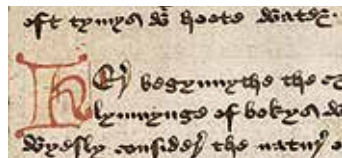 oft tymys wt hoote water
HEr begynnythe the cr
lymnynge of bokys w
wyesly consider the natur o